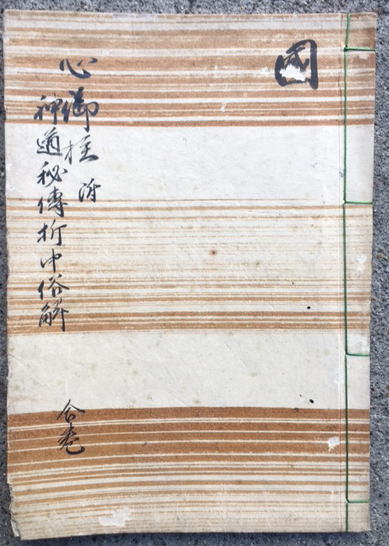 國
心御柱 附
神道秘傳折中俗解
合卷